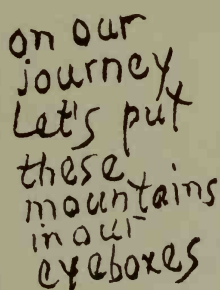 on our
journey
Let's put
these
mountains
in our
eyeboxes